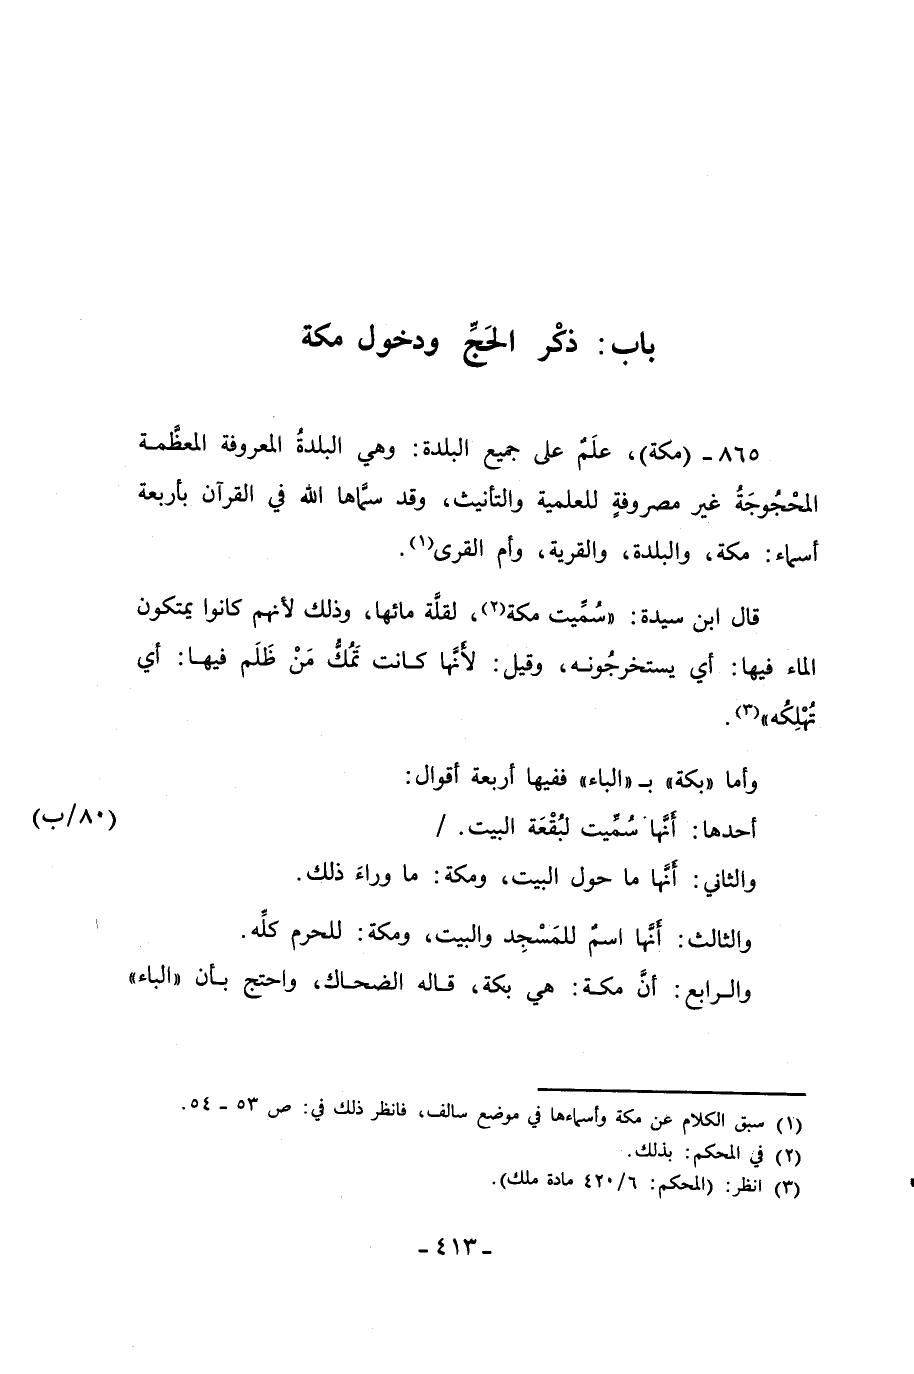 باب: ذكْر الحَجِّ ودخول مكة
٨٦٥ ـ (مكة)، علَمٌ على جميع البلدة: وهي البلدةُ المعروفة المعظَّمـة
المحْجُوجَةُ غير مصروفةٍ للعلمية والتأنيث، وقد سمَّاها الله في القرآن بأربعة
أسماء: مكة، والبلدة، والقرية، وأم القرى(١).
قال ابن سيدة: «سُمِّيت مكة(٢)، لقلَّة مائها، وذلك لأنهم كانوا يمتكون
الماء فيها: أي يستخرجُونـه، وقيل: لأَنَّها كـانت تَمُكُّ مَنْ ظَلَم فيهـا: أي
تُهْلِكُه»(٣).
وأما «بكة» بـ «الباء» ففيها أربعة أقوال:
أحدها: أَنَّها سُمِّيت لبُقْعَة البيت. / (٨٠/ب)
والثاني: أَنَّها ما حول البيت، ومكة: ما وراءَ ذلك.
والثالث: أَنَّها اسمٌ للمَسْجِد والبيت، ومكة: للحرم كلِّه.
والـرابع: أنَّ مكـة: هي بكة، قـاله الضحـاك، واحتج بـأن «الباء»
(١) سبق الكلام عن مكة وأسماءها في موضع سالف، فانظر ذلك في: ص ٥٣ ـ ٥٤.
(٢) في المحكم: بذلك.
(٣) انظر: (المحكم: ٤٢٠/٦ مادة ملك).
ـ ٤١٣ ـ